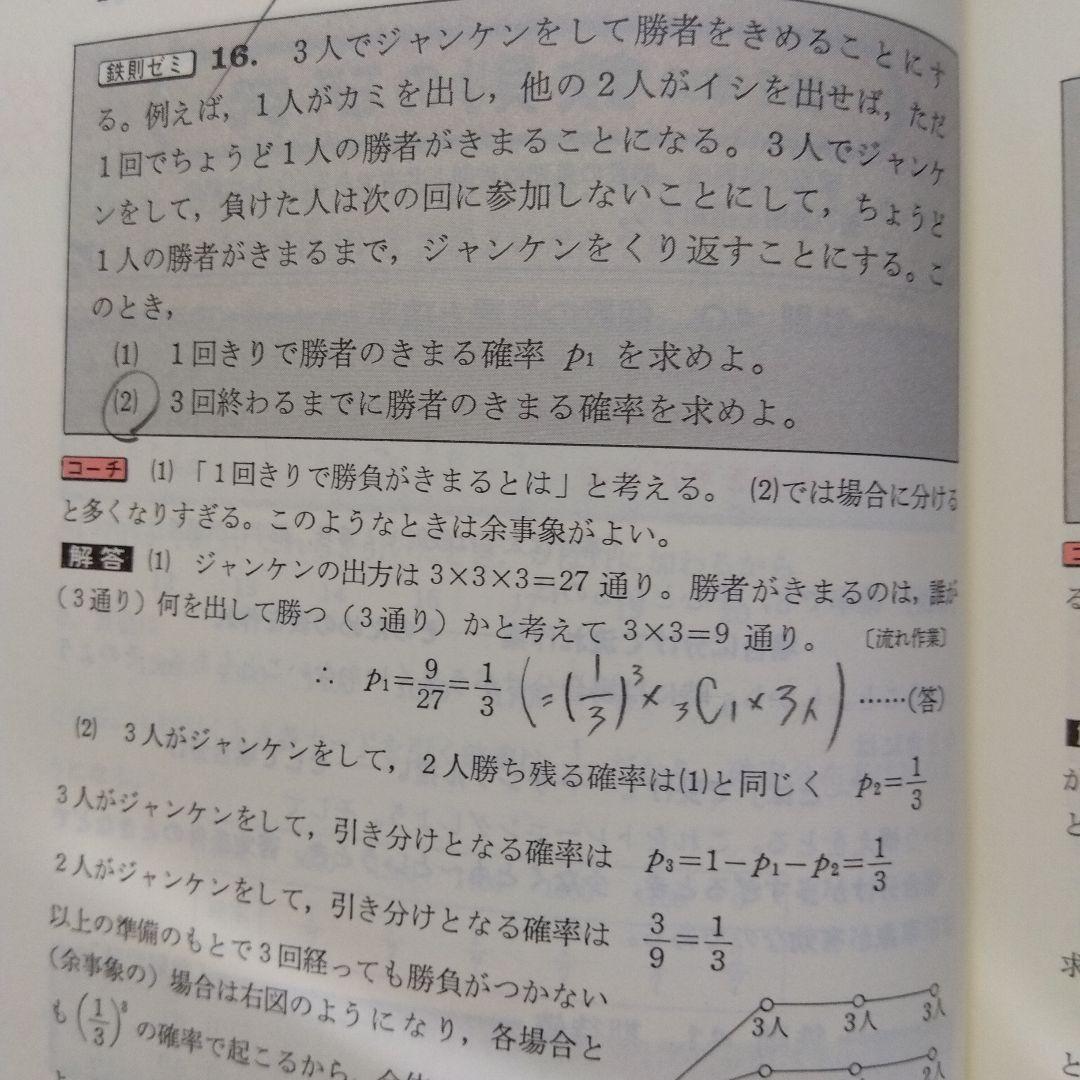 鉄則ゼミ 16. 3人でジャンケンをして勝者をきめることにす
る。例えば，1人がカミを出し，他の2人がイシを出せば，ただ
1回でちょうど1人の勝者がきまることになる。3人でジャンケ
ンをして，負けた人は次の回に参加しないことにして，ちょうど
1人の勝者がきまるまで，ジャンケンをくり返すことにする。こ
のとき，
(1) 1回きりで勝者のきまる確率 p₁ を求めよ。
(2) 3回終わるまでに勝者のきまる確率を求めよ。
コーチ (1)「1回きりで勝負がきまるとは」と考える。 (2)では場合に分ける
と多くなりすぎる。このようなときは余事象がよい。
解答 (1) ジャンケンの出方は 3×3×3=27 通り。勝者がきまるのは，誰が
(3通り) 何を出して勝つ (3通り) かと考えて 3×3=9 通り。 〔流れ作業〕
∴ p₁=9/27=1/3 (=(1/3)³×₃C₁×3人) ……(答)
(2) 3人がジャンケンをして，2人勝ち残る確率は(1)と同じく p₂=1/3
3人がジャンケンをして，引き分けとなる確率は p₃=1-p₁-p₂=1/3
2人がジャンケンをして，引き分けとなる確率は 3/9=1/3
以上の準備のもとで3回経っても勝負がつかない
(余事象の) 場合は右図のようになり，各場合と
も (1/3)³ の確率で起こるから，
3人 3人 3人
2人